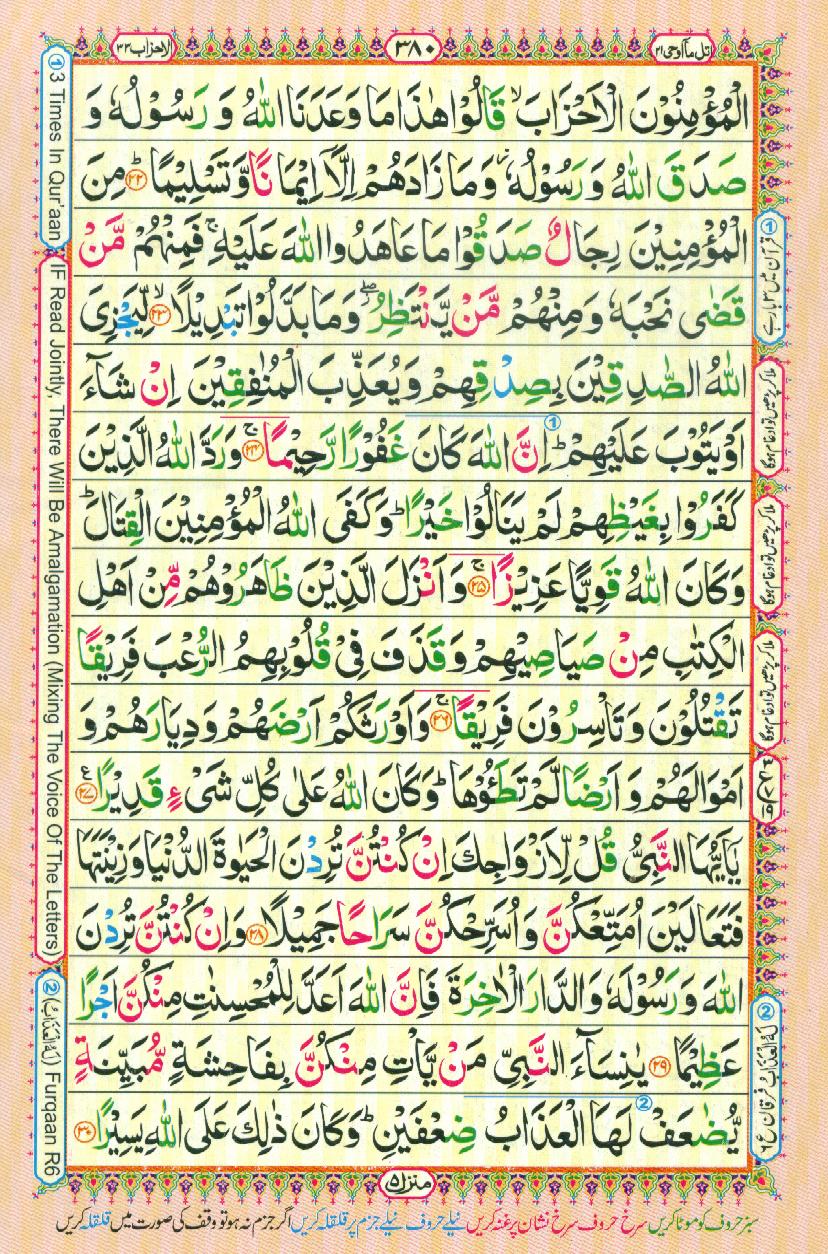 اتل ماۤ اوحی ۲۱
۳۸۰
الاحزاب ۳۳
الْمُؤْمِنُوْنَ الْاَحْزَابَ ۙ قَالُوْا هٰذَا مَا وَعَدَنَا اللّٰهُ وَ رَسُوْلُهٗ وَ
صَدَقَ اللّٰهُ وَ رَسُوْلُهٗ ؗ وَ مَا زَادَهُمْ اِلَّاۤ اِیْمَانًا وَّ تَسْلِیْمًا ؕ۝۲۲ مِنَ
الْمُؤْمِنِیْنَ رِجَالٌ صَدَقُوْا مَا عَاهَدُوا اللّٰهَ عَلَیْهِ ۚ فَمِنْهُمْ مَّنْ
قَضٰی نَحْبَهٗ وَ مِنْهُمْ مَّنْ یَّنْتَظِرُ ۖؗ وَ مَا بَدَّلُوْا تَبْدِیْلًا ۙ۝۲۳ لِّیَجْزِیَ
اللّٰهُ الصّٰدِقِیْنَ بِصِدْقِهِمْ وَ یُعَذِّبَ الْمُنٰفِقِیْنَ اِنْ شَآءَ
اَوْ یَتُوْبَ عَلَیْهِمْ ؕ اِنَّ اللّٰهَ كَانَ غَفُوْرًا رَّحِیْمًا ۚ۝۲۴ وَ رَدَّ اللّٰهُ الَّذِیْنَ
كَفَرُوْا بِغَیْظِهِمْ لَمْ یَنَالُوْا خَیْرًا ؕ وَ كَفَی اللّٰهُ الْمُؤْمِنِیْنَ الْقِتَالَ ؕ
وَ كَانَ اللّٰهُ قَوِیًّا عَزِیْزًا ۚ۝۲۵ وَ اَنْزَلَ الَّذِیْنَ ظَاهَرُوْهُمْ مِّنْ اَهْلِ
الْكِتٰبِ مِنْ صَیَاصِیْهِمْ وَ قَذَفَ فِیْ قُلُوْبِهِمُ الرُّعْبَ فَرِیْقًا
تَقْتُلُوْنَ وَ تَاْسِرُوْنَ فَرِیْقًا ۚ۝۲۶ وَ اَوْرَثَكُمْ اَرْضَهُمْ وَ دِیَارَهُمْ وَ
اَمْوَالَهُمْ وَ اَرْضًا لَّمْ تَطَـُٔوْهَا ؕ وَ كَانَ اللّٰهُ عَلٰی كُلِّ شَیْءٍ قَدِیْرًا ۠۝۲۷
یٰۤاَیُّهَا النَّبِیُّ قُلْ لِّاَزْوَاجِكَ اِنْ كُنْتُنَّ تُرِدْنَ الْحَیٰوةَ الدُّنْیَا وَ زِیْنَتَهَا
فَتَعَالَیْنَ اُمَتِّعْكُنَّ وَ اُسَرِّحْكُنَّ سَرَاحًا جَمِیْلًا ۝۲۸ وَ اِنْ كُنْتُنَّ تُرِدْنَ
اللّٰهَ وَ رَسُوْلَهٗ وَ الدَّارَ الْاٰخِرَةَ فَاِنَّ اللّٰهَ اَعَدَّ لِلْمُحْسِنٰتِ مِنْكُنَّ اَجْرًا
عَظِیْمًا ۝۲۹ یٰنِسَآءَ النَّبِیِّ مَنْ یَّاْتِ مِنْكُنَّ بِفَاحِشَةٍ مُّبَیِّنَةٍ
یُّضٰعَفْ لَهَا الْعَذَابُ ضِعْفَیْنِ ؕ وَ كَانَ ذٰلِكَ عَلَی اللّٰهِ یَسِیْرًا ۝۳۰
منزل ۵
سبز حروف کو موٹا کریں سرخ حروف سرخ نشان پر غنہ کریں نیلے حروف نیلے جزم پر قلقلہ کریں اگر جزم نہ ہو تو وقف کی صورت میں قلقلہ کریں
① قرآن میں ۳ بار ہے
ملا کر پڑھیں تو ادغام ہوگا
ملا کر پڑھیں تو ادغام ہوگا
ملا کر پڑھیں تو ادغام ہوگا
② لَهُ الْعَذَابُ فرقان ع ۶
① 3 Times In Qur'aan
IF Read Jointly, There Will Be Amalgamation (Mixing The Voice Of The Letters)
② (لَهُ الْعَذَابُ) Furqaan R6